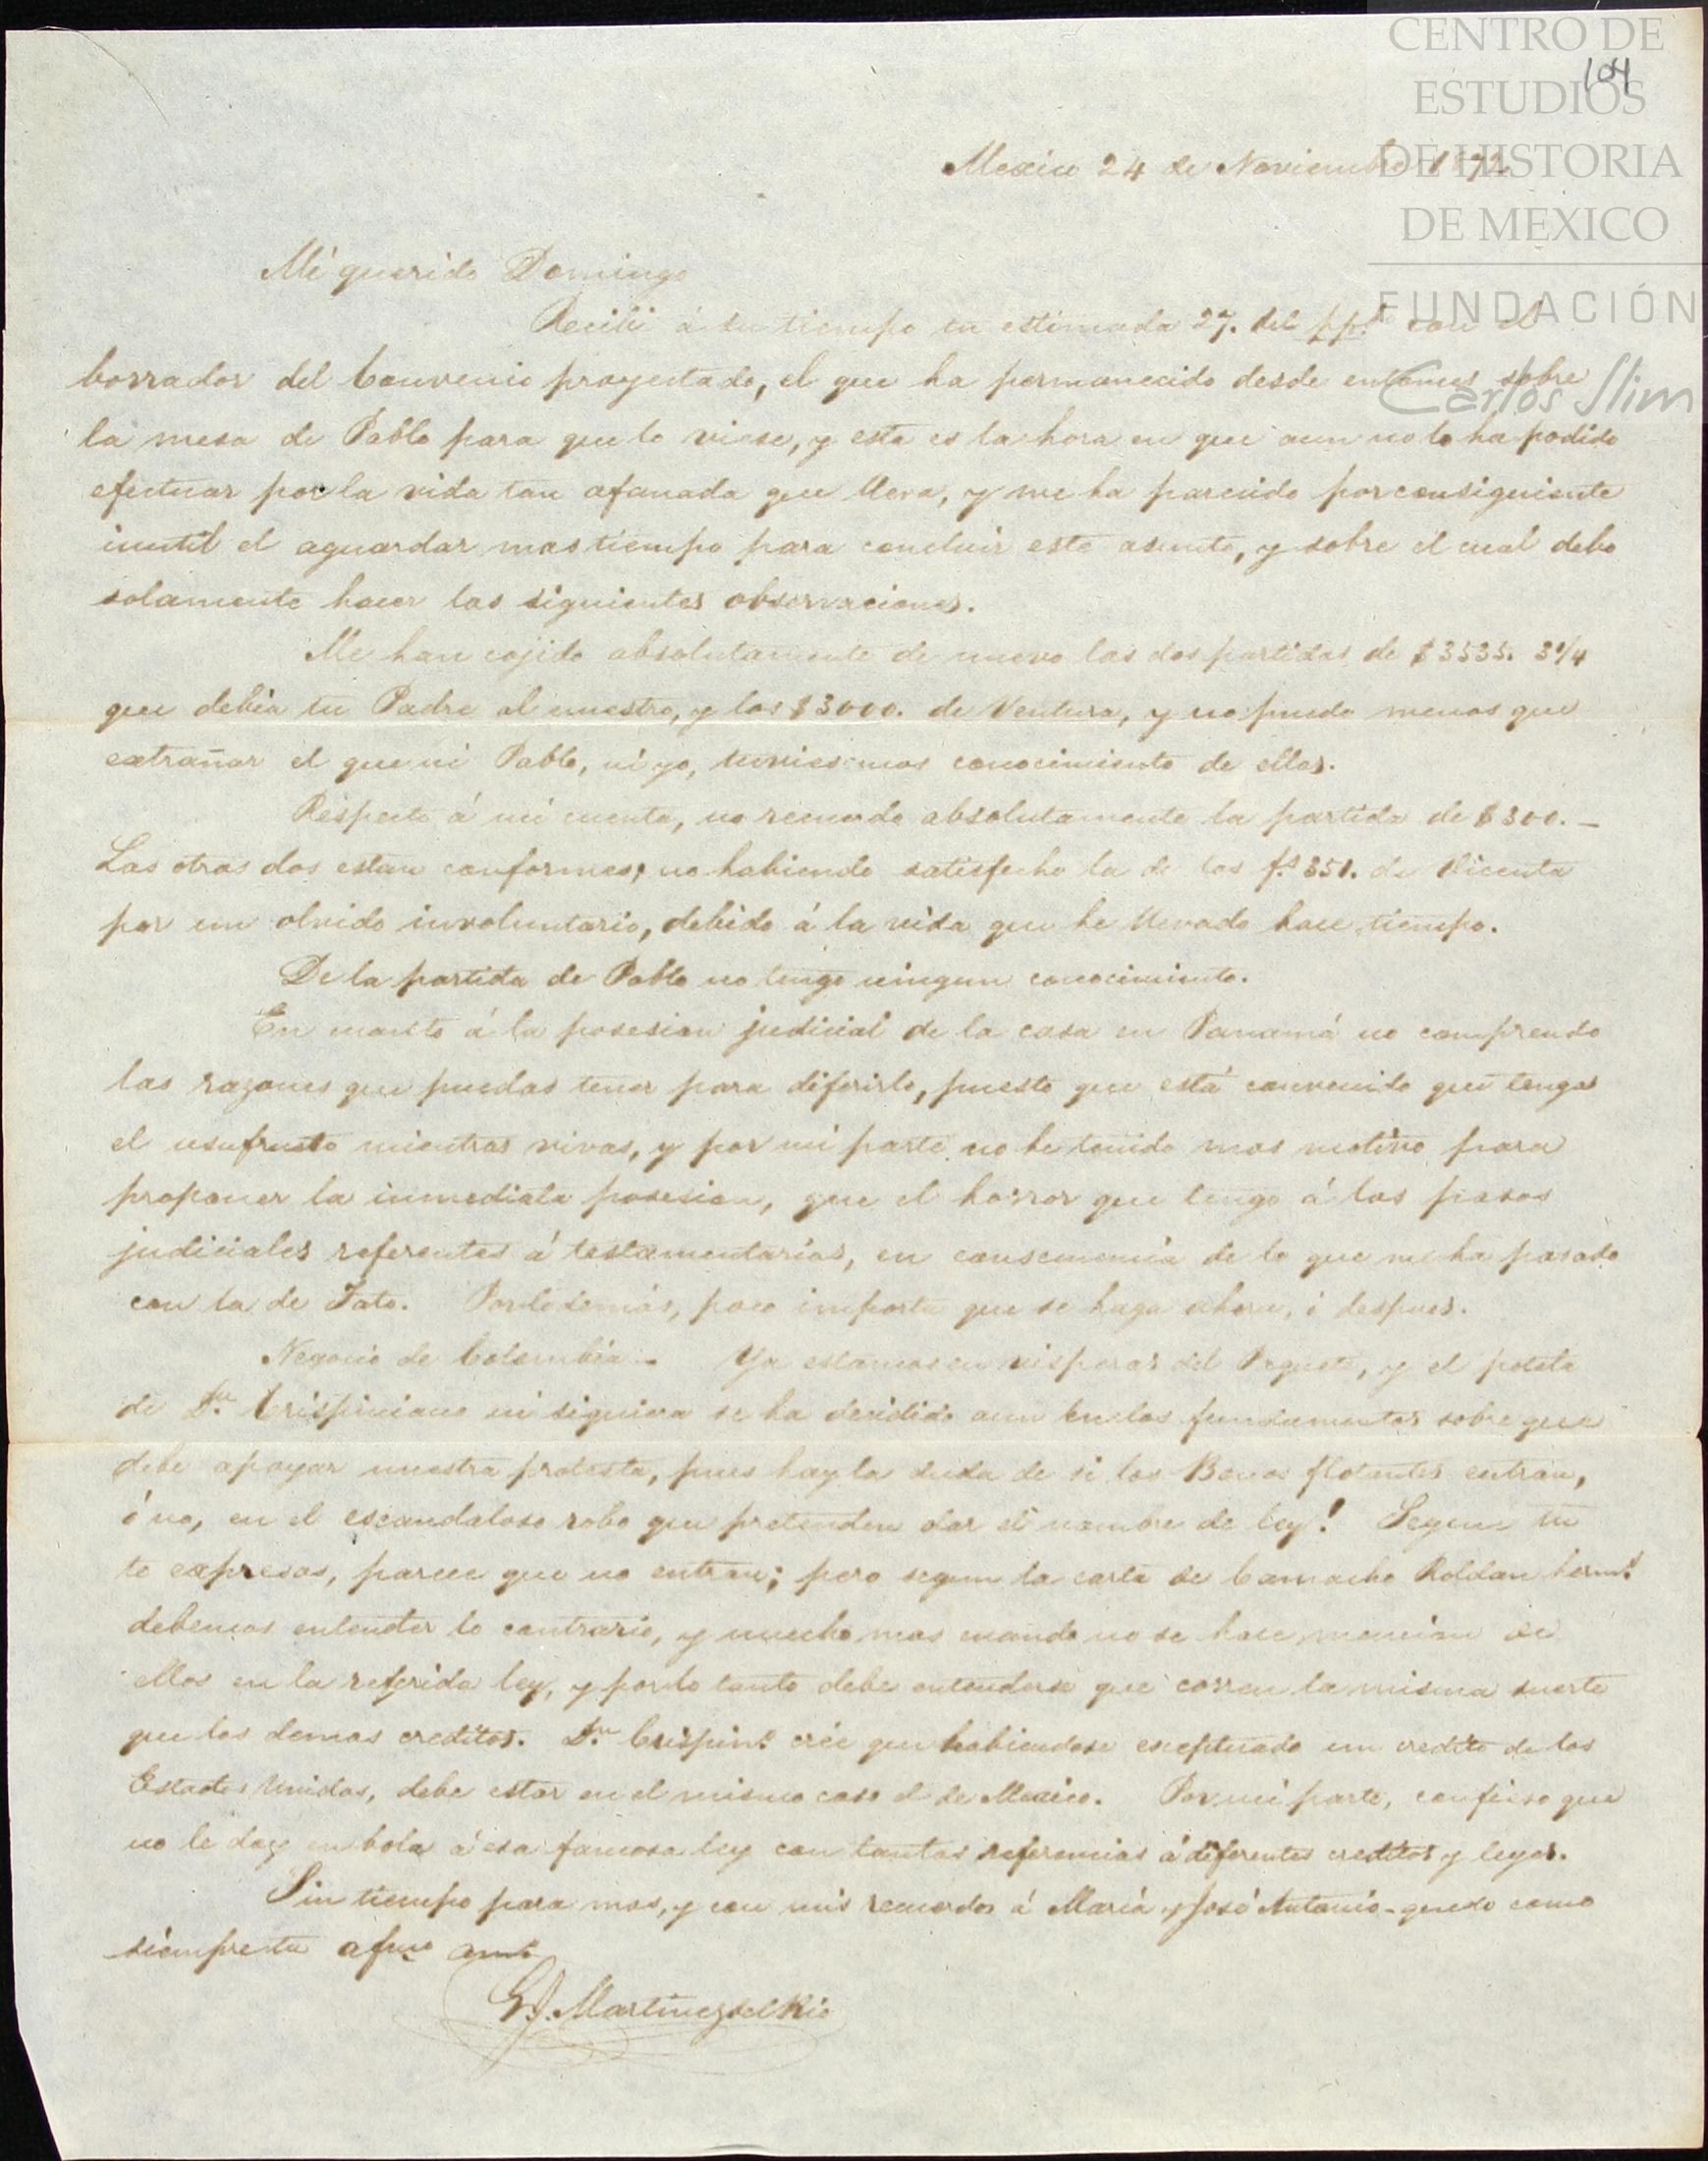 CENTRO DE
ESTUDIOS
DE HISTORIA
DE MEXICO
FUNDACIÓN
Carlos Slim
104
Mexico 24 de Noviembre 1872
Mi querido Domingo
Recibi á su tiempo tu estimada 27. del pp.do con el
borrador del Convenio proyectado, el que ha permanecido desde entonces sobre
la mesa de Pablo para que lo viese, y esta es la hora en que aun no lo ha podido
efectuar por la vida tan afanada que lleva, y me ha parecido por consiguiente
inutil el aguardar mas tiempo para concluir este asunto, y sobre el cual debo
solamente hacer las siguientes observaciones.
Me han cojido absolutamente de nuevo las dos partidas de $3535. 3 1/4
que debia tu Padre al nuestro, y los $3000. de Ventura, y no puedo menos que
extrañar el que ni Pablo, ni yo, tuviesemos conocimiento de ellas.
Respecto á mi cuenta, no recuerdo absolutamente la partida de $300. _
Las otras dos estan conformes; no habiendo satisfecho la de los f.s 351. de Vicenta
por un olvido involuntario, debido á la vida que he llevado hace tiempo.
De la partida de Pablo no tengo ningun conocimiento.
En cuanto á la posesion judicial de la casa en Panamá no comprendo
las razones que puedas tener para diferirlo, puesto que está convenido que tengas
el usufructo mientras vivas, y por mi parte no he tenido mas motivo para
proponer la inmediata posesion, que el horror que tengo á los pasos
judiciales referentes á testamentarias, en consecuencia de lo que me ha pasado
con la de Tato. Por lo demás, poco importa que se haga ahora, ó despues.
Negocio de Colombia _ Ya estamos en visperas del Paquete, y el
de Dn. Crispiniano ni siquiera se ha decidido aun en los fundamentos sobre que
debe apoyar nuestra protesta, pues hay la duda de si los Bonos flotantes entran,
ó no, en el escandaloso robo que pretenden dar el nombre de ley! Segun tu
te expresas, parece que no entran; pero segun la carta de Camacho Roldan herm.s
debemos entender lo contrario, y mucho mas cuando no se hace mencion de
ellos en la referida ley, y por lo tanto debe entenderse que corren la misma suerte
que los demas creditos. Dn. Crispin.o crée que habiendose exceptuado un credito de los
Estados Unidos, debe estar en el mismo caso el de Mexico. Por mi parte, confieso que
no le doy en bola á esa famosa ley con tantas referencias á diferentes creditos y leyes.
Sin tiempo para mas, y con mis recuerdos á María y José Antonio _ quedo como
siempre tu afmo amo
G. J. Martinez del Rio